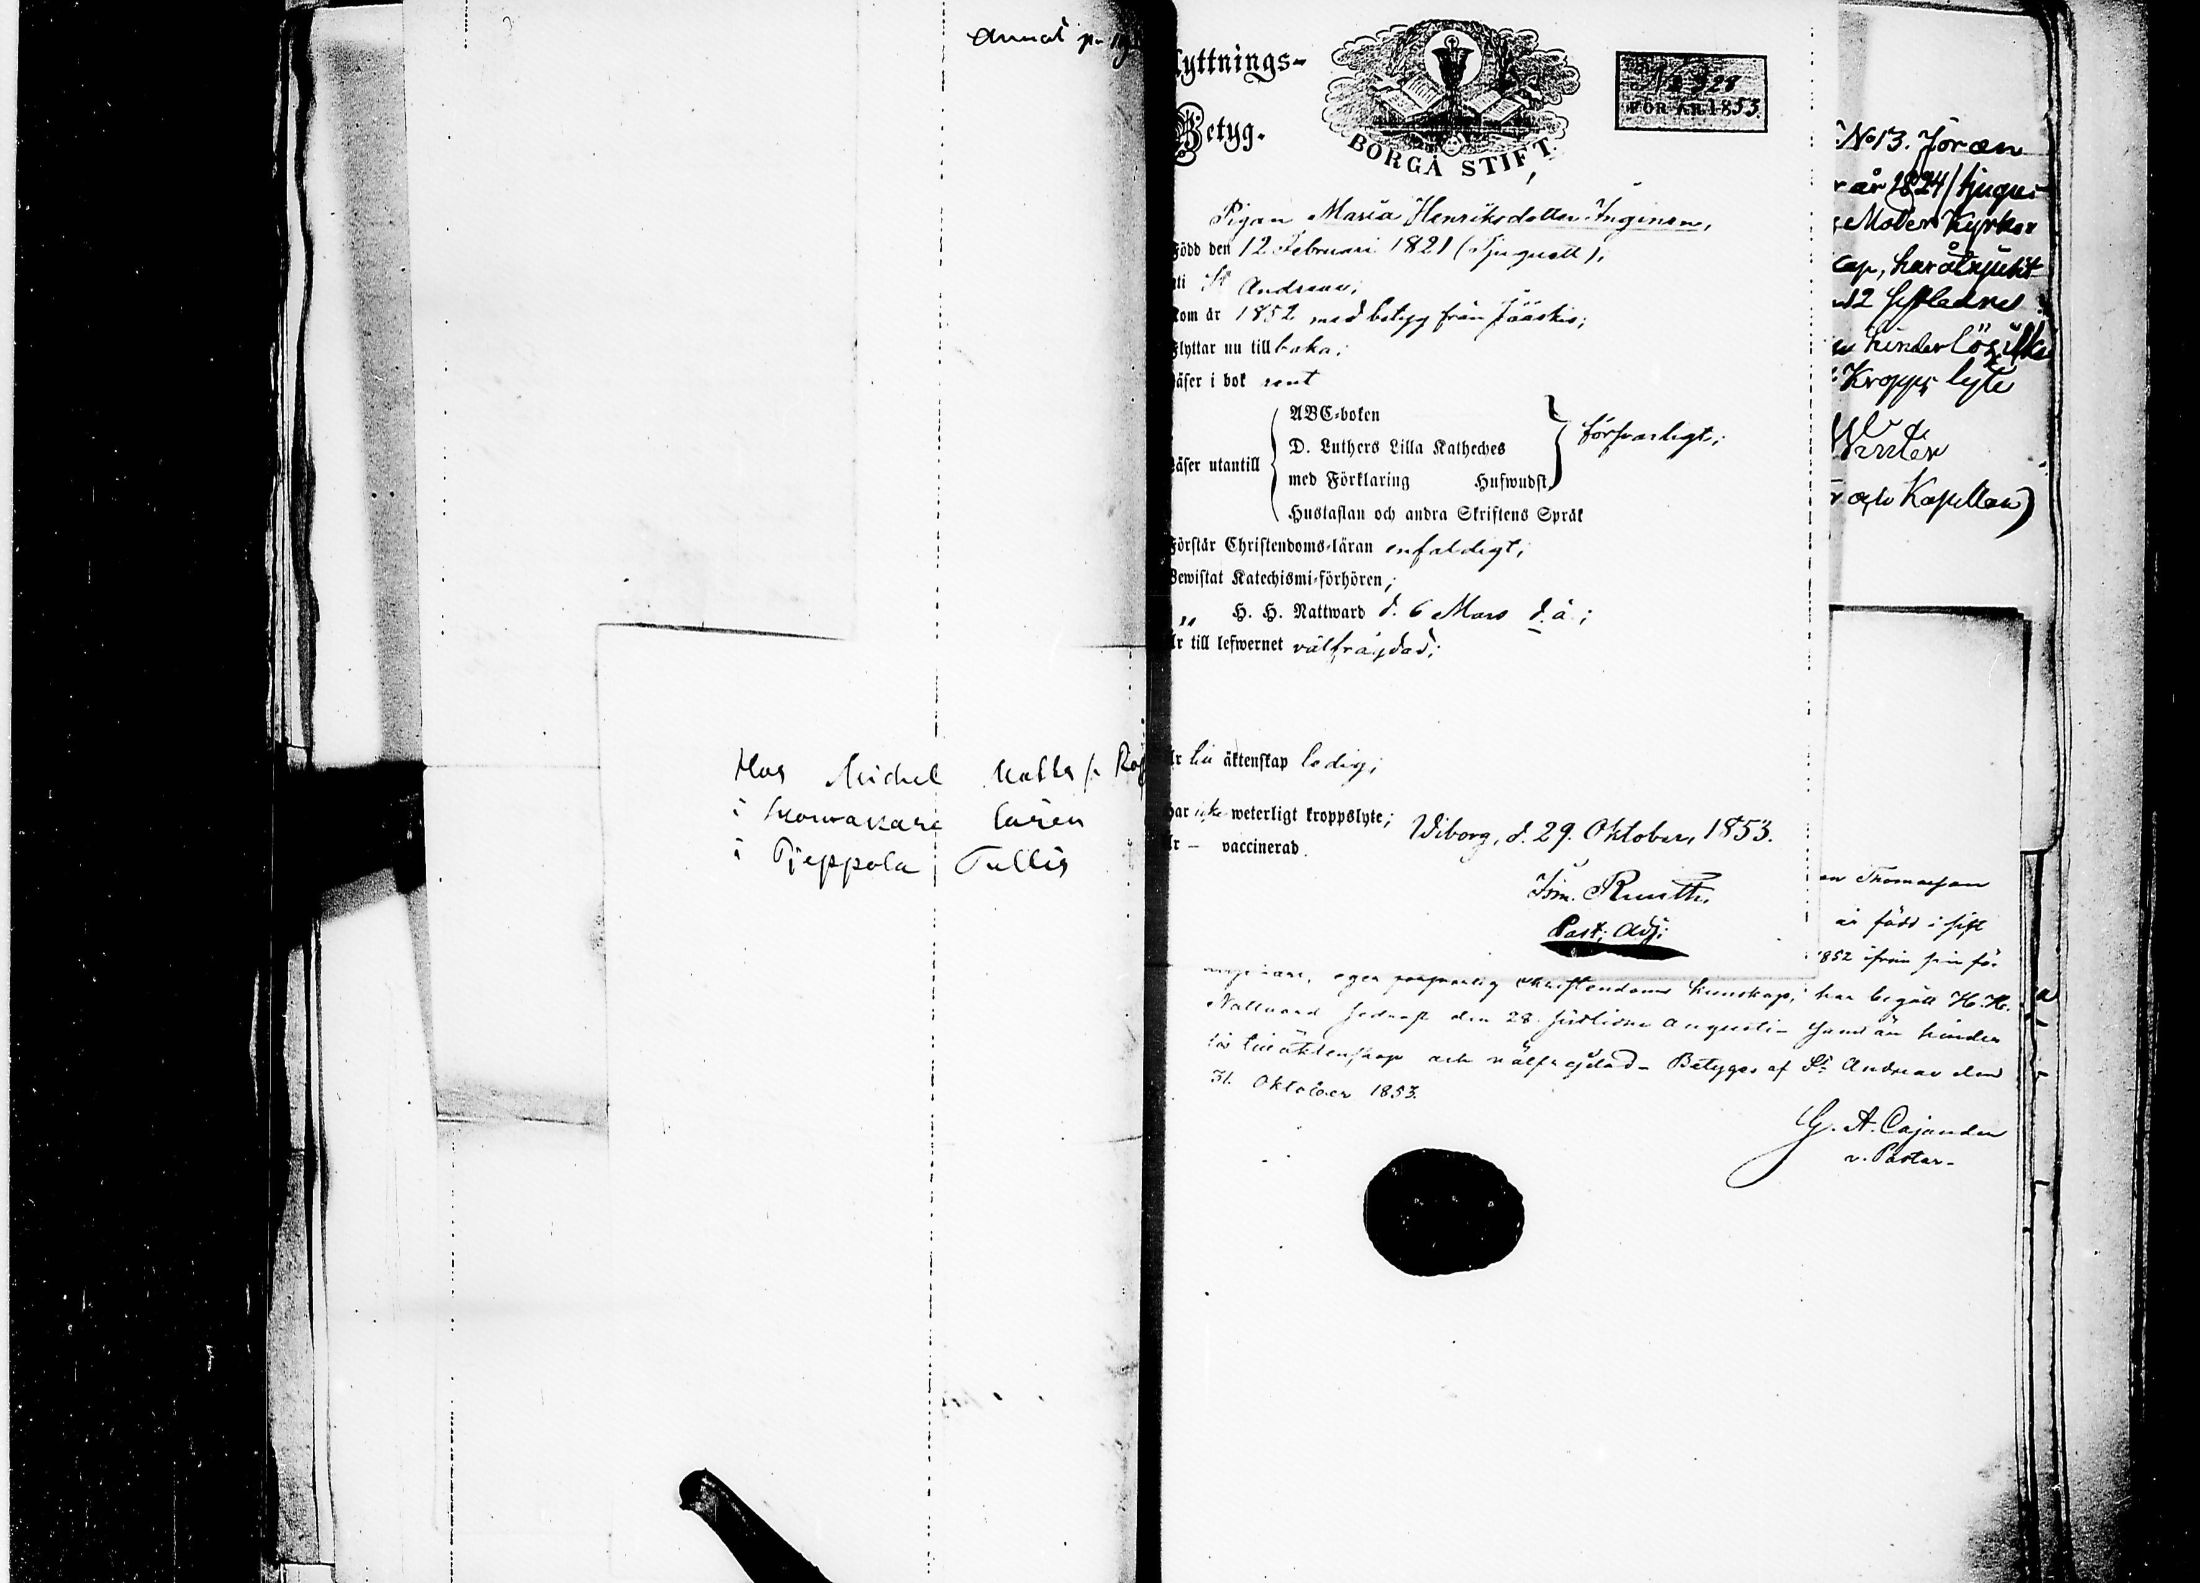 Annat p
Hos Michel Matts
i
i Pjeppola Tullis
lyttnings-
Betyg.
BORGÅ STIFT.
No 928
FÖR ÅR 1853.
Pigan Maria Henriksdotter Inginen,
Född den 12 Februari 1821 (Tjuguett),
uti St Andreae;
Kom år 1852 med betyg från Jääskis;
Flyttar nu tillbaka;
Läser i bok rent
Läser utantill
ABC-boken
D. Luthers Lilla Katheches
med Förklaring Hufwudst.
Hustaflan och andra Skriftens Språk
försvarligt;
Förstår Christendoms-läran enfaldigt;
Bewistat Katechismi-förhören;
„ H. H. Nattward d. 6 Mars d. å.;
Är till lefwernet välfräjdad;
Är till äktenskap ledig;
Har icke weterligt kroppslyte;
Är – vaccinerad.
Wiborg, d. 29. Oktober, 1853.
Past. Adj.
No 13. Jöran
år 1824 / tjugu
Moder Kyrko
cap, har åtnjutit
hinderlös
Kropps lyte
Kapellan)
en Thomasson
är född i
1852 ifrån sin fö-
eger försvarlig christendoms kunskap; har begått H. H.
Nattvard sednast den 28 sistledne Augusti samt är hinder
lös till äktenskap och välfrejdad – Betygas af St Andreae den
31. Oktober 1853.
G. A. Cajander
v. Pastor.